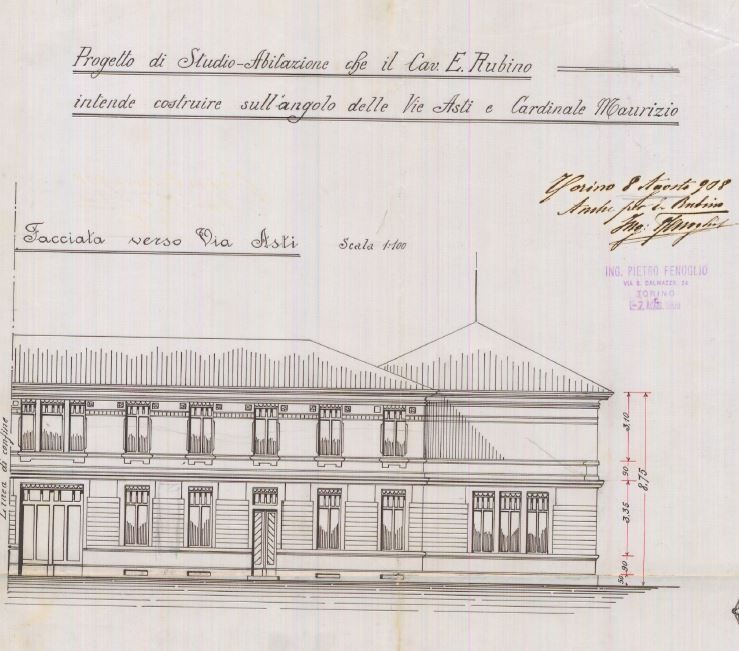 Progetto di Studio-Abitazione che il Cav. E. Rubino
intende costruire sull'angolo delle Vie Asti e Cardinale Maurizio
Torino 8 Agosto 908
Rubino
Ing.
Facciata verso Via Asti
Scala 1:100
ING. PIETRO FENOGLIO
VIA S. DALMAZZO, 24
TORINO
Linea di confine
3,10
90
8,75
3,35
90
50